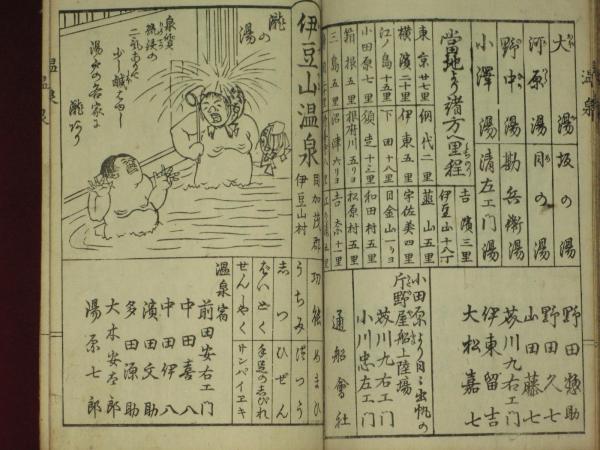 温泉
大湯
坂の湯
河原湯
目の湯
野中湯
勘兵衛湯
小澤湯
清左エ門湯
當地より諸方へ里程
吉濱三里
伊豆山十八丁
東京廿七里
網代二里
韮山五里
横濱二十里
伊東五里
宇佐美四里
江ノ島十五里
下田十八里
日金山一リヨ
小田原七里
頼朝十三里
和田村五里
箱根五里
根府川五リヨ
松原村五里
三島五里
沼津六リヨ
吉奈十一里
野田惣助
野田久七
山田藤七
荻川九右エ門
伊東留吉
大松嘉七
小田原より日々出帆の
片野屋船上陸場
荻川九右エ門
小川忠左エ門
通船會社
伊豆山温泉
同加茂郡
伊豆山村
瀧の湯
泉質
硫侠の
二気ありて
少し鹹はし
湯戸の各家に
瀧あり
功能
めまひ
うちみ
づつう
しつ
ひぜん
ばいどく
手足のしびれ
せんしやく
サンバイヱキ
温泉宿
前田安右エ門
中田喜八
中田伊八
濱田文助
多田源助
大木安太郎
湯原七郎
温泉